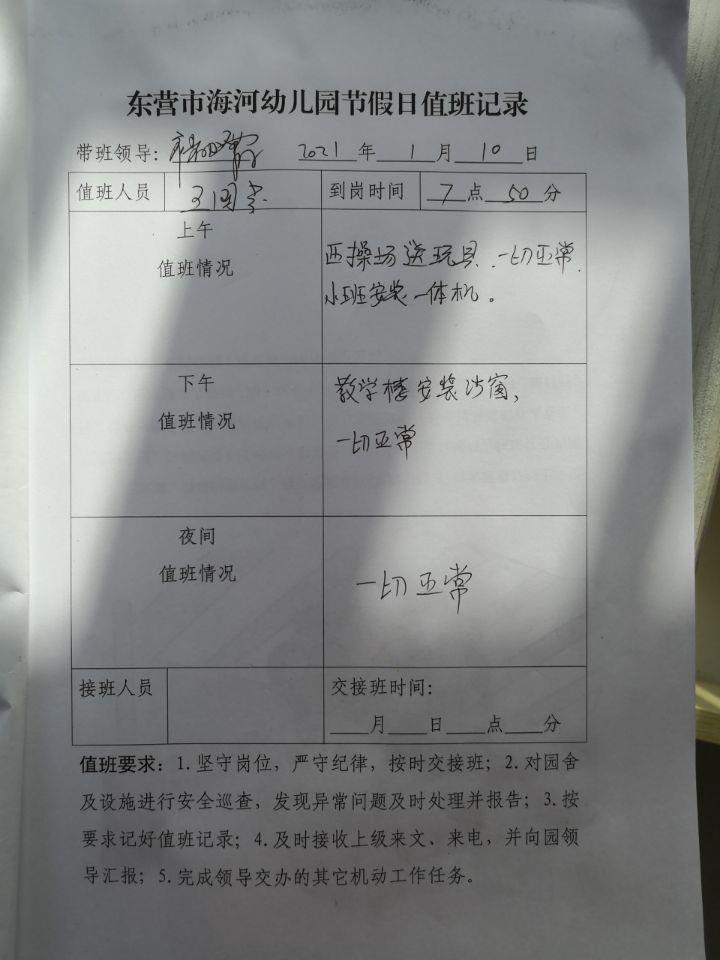 东营市海河幼儿园节假日值班记录
带班领导： 2021 年 1 月 10 日
值班人员 到岗时间 7 点 50 分
上午
值班情况
西操场送玩具.一切正常.
小班安装一体机。
下午
值班情况
教学楼安装沙窗,
一切正常
夜间
值班情况
一切正常
接班人员 交接班时间：
月 日 点 分
值班要求：1.坚守岗位，严守纪律，按时交接班；2.对园舍
及设施进行安全巡查，发现异常问题及时处理并报告；3.按
要求记好值班记录；4.及时接收上级来文、来电，并向园领
导汇报；5.完成领导交办的其它机动工作任务。